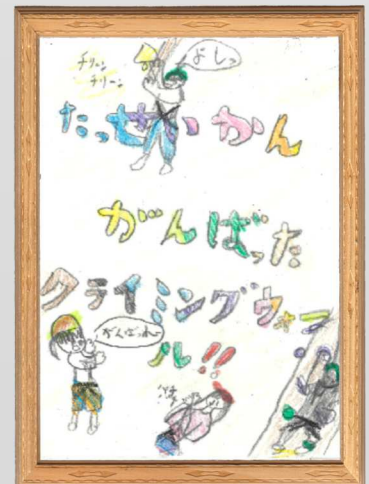 チリンチリン
よしっ
たっせいかん
がんばった
クライミングウォー
ル!!
がんばれー